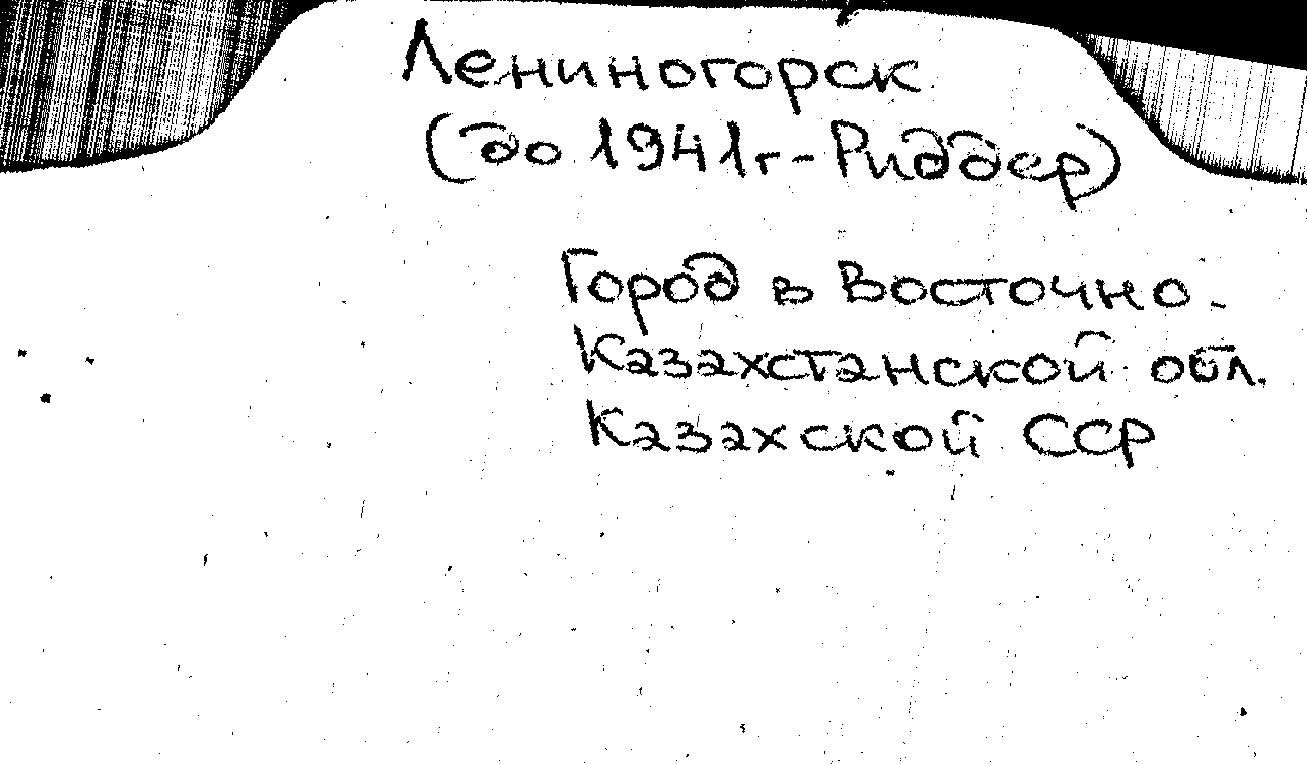 Лениногорск
(до 1941г - Риддер)
Город в Восточно-
Казахстанской обл.
Казахской ССР